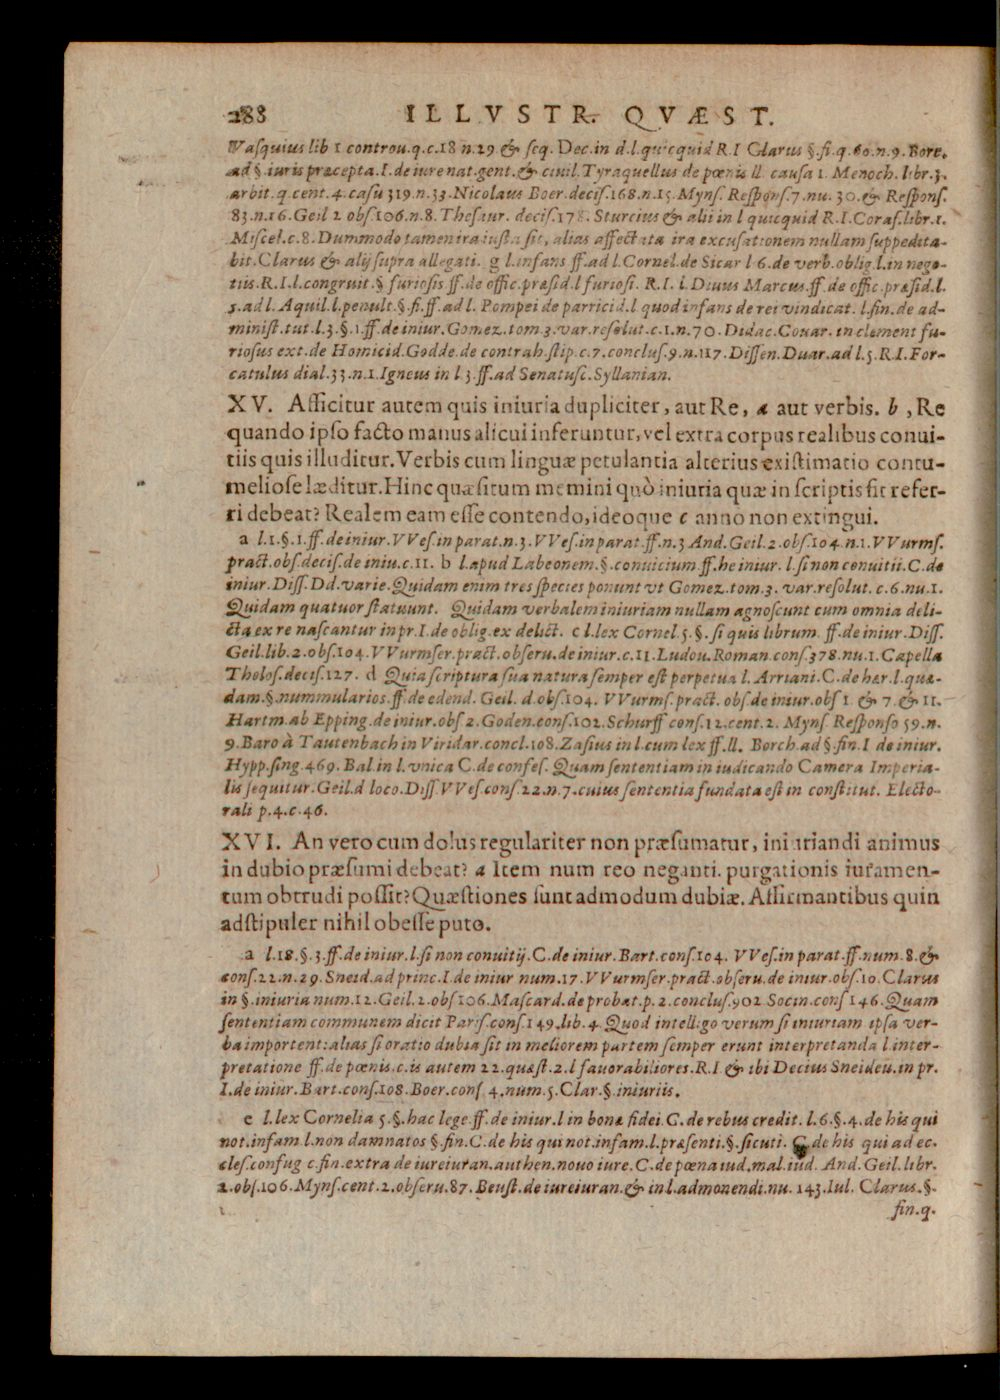 288 ILLVSTR. QVÆST.
Vasquius lib 1 controu.q.c.18 n.29 & seq. Dec.in d.l.quicquid R.I Clarus §.fi.q.60.n.9. Bore.
ad §.iuris præcepta.I.de iure nat.gent.& ciuil.Tyraquellus de pœnis ll causa 1. Menoch.libr.3.
arbit.q cent.4.casu 319.n.33.Nicolaus Boer.decis.168.n.15.Myns.Respons.7.nu.30.& Respons.
83.n.16.Geil 2 obs.106.n.8.Thesaur. decis.178. Sturcius & alii in l quicquid R.I.Coras.libr.1.
Miscel.c.8.Dummodo tamen ira iusta sit, alias affectata ira excusationem nullam suppedita-
bit.Clarus & alij supra allegati. g l.infans ff.ad l.Cornel.de Sicar l 6.de verb.oblig.l.in nego-
tiis.R.I.l.congruit.§ furiosis ff.de offic.præsid.l furiosi. R.I. l.Diuus Marcus.ff.de offic.præsid.l.
5.ad l. Aquil.l.penult.§.fi.ff.ad l. Pompei de parricid.l quod infans de rei vindicat. l.fin.de ad-
minist.tut.l.3.§.1.ff.de iniur.Gomez.tom.3.var.resolut.c.1.n.70.Didac.Couar.in clement fu-
riosus ext.de Homicid.Godde.de contrah.stip.c.7.conclus.9.n.117.Dissen.Duar.ad l.5.R.I.For-
catulus dial.33.n.1.Igneus in l 3.ff.ad Senatusc.Syllanian.
XV. Afficitur autem quis iniuria dupliciter, aut Re, a aut verbis. b , Re
quando ipso facto manus alicui inferuntur, vel extra corpus realibus conui-
tiis quis illuditur. Verbis cum linguæ petulantia alterius existimatio contu-
meliose læditur. Hinc quæsitum memini quò iniuria quæ in scriptis fit refer-
ri debeat? Realem eam esse contendo, ideoque c anno non extingui.
a l.1.§.1.ff.de iniur.VVes.in parat.n.3.VVes.in parat.ff.n.3 And.Geil.2.obs.104.n.1.VVurms.
pract.obs.decis.de iniu.c.11. b l.apud Labeonem.§.conuicium.ff.he iniur. l.si non conuitii.C.de
iniur.Diss.Dd.varie.Quidam enim tres species ponunt vt Gomez.tom.3. var.resolut. c.6.nu.1.
Quidam quatuor statuunt. Quidam verbalem iniuriam nullam agnoscunt cum omnia deli-
cta ex re nascantur in pr.I.de oblig.ex delict. c l.lex Cornel.5.§.si quis librum. ff.de iniur.Diss.
Geil.lib.2.obs.104.VVurmser.pract.obseru.de iniur.c.11.Ludou.Roman.cons.378.nu.1.Capella
Tholos.decis.127. d Quia scriptura sua natura semper est perpetua l. Arriani.C.de hær.l.quæ-
dam.§.nummularios.ff.de edend. Geil. d.obs.104. VVurms.pract. obs.de iniur.obs 1. & 7. & 11.
Hartm.ab Epping.de iniur.obs 2.Goden.cons.102.Schurff cons.12.cent.2. Myns Responso 59.n.
9.Baro à Tautenbach in Viridar.concl.108.Zasius in l.cum lex ff.ll. Borch.ad §.fin.I de iniur.
Hypp.sing.469. Bal.in l.vnica C.de confes. Quam sententiam in iudicando Camera Imperia-
lis sequitur.Geil.d loco.Diss.VVes.cons.22.n.7.cuius sententia fundata est in constitut. Electo-
rali p.4.c.46.
XVI. An vero cum dolus regulariter non præsumatur, iniuriandi animus
in dubio præsumi debeat? a Item num reo neganti. purgationis iuramen-
tum obtrudi possit? Quæstiones sunt admodum dubiæ. Affirmantibus quin
adstipuler nihil obesse puto.
a l.18.§.3.ff.de iniur.l.si non conuitij.C.de iniur.Bart.cons.104. VVes.in parat.ff.num.8.&
cons.22.n.29.Sneid.ad princ.I.de iniur num.17.VVurmser.pract.obseru.de iniur.obs.10.Clarus
in §.iniuria num.12.Geil.2.obs 106.Mascard.de probat.p.2.conclus.902 Socin.cons 146.Quam
sententiam communem dicit Paris.cons.149.lib.4.Quod intelligo verum si iniuriam ipsa ver-
ba importent: alias si oratio dubia sit in meliorem partem semper erunt interpretanda l inter-
pretatione ff.de pœnis.c.is autem 22.quæst.2.l fauorabiliores.R.I & ibi Decius Sneideu.in pr.
I.de iniur.Bart.cons.108.Boer.cons 4.num.5.Clar.§.iniuriis.
e l.lex Cornelia 5.§.hac lege ff.de iniur.l in bonæ fidei.C.de rebus credit.l.6.§.4.de his qui
not.infam.l.non damnatos §.fin.C.de his qui not.infam.l.præsenti.§.sicuti. C.de his qui ad ec-
cles.confug c.fin.extra de iureiuran.authen.nouo iure.C.de pœna iud.mal.iud. And.Geil.libr.
2.obs.106.Myns.cent.2.obseru.87.Beust.de iureiuran.& in l.admonendi.nu.143.Iul. Clarus.§.
fin.q.